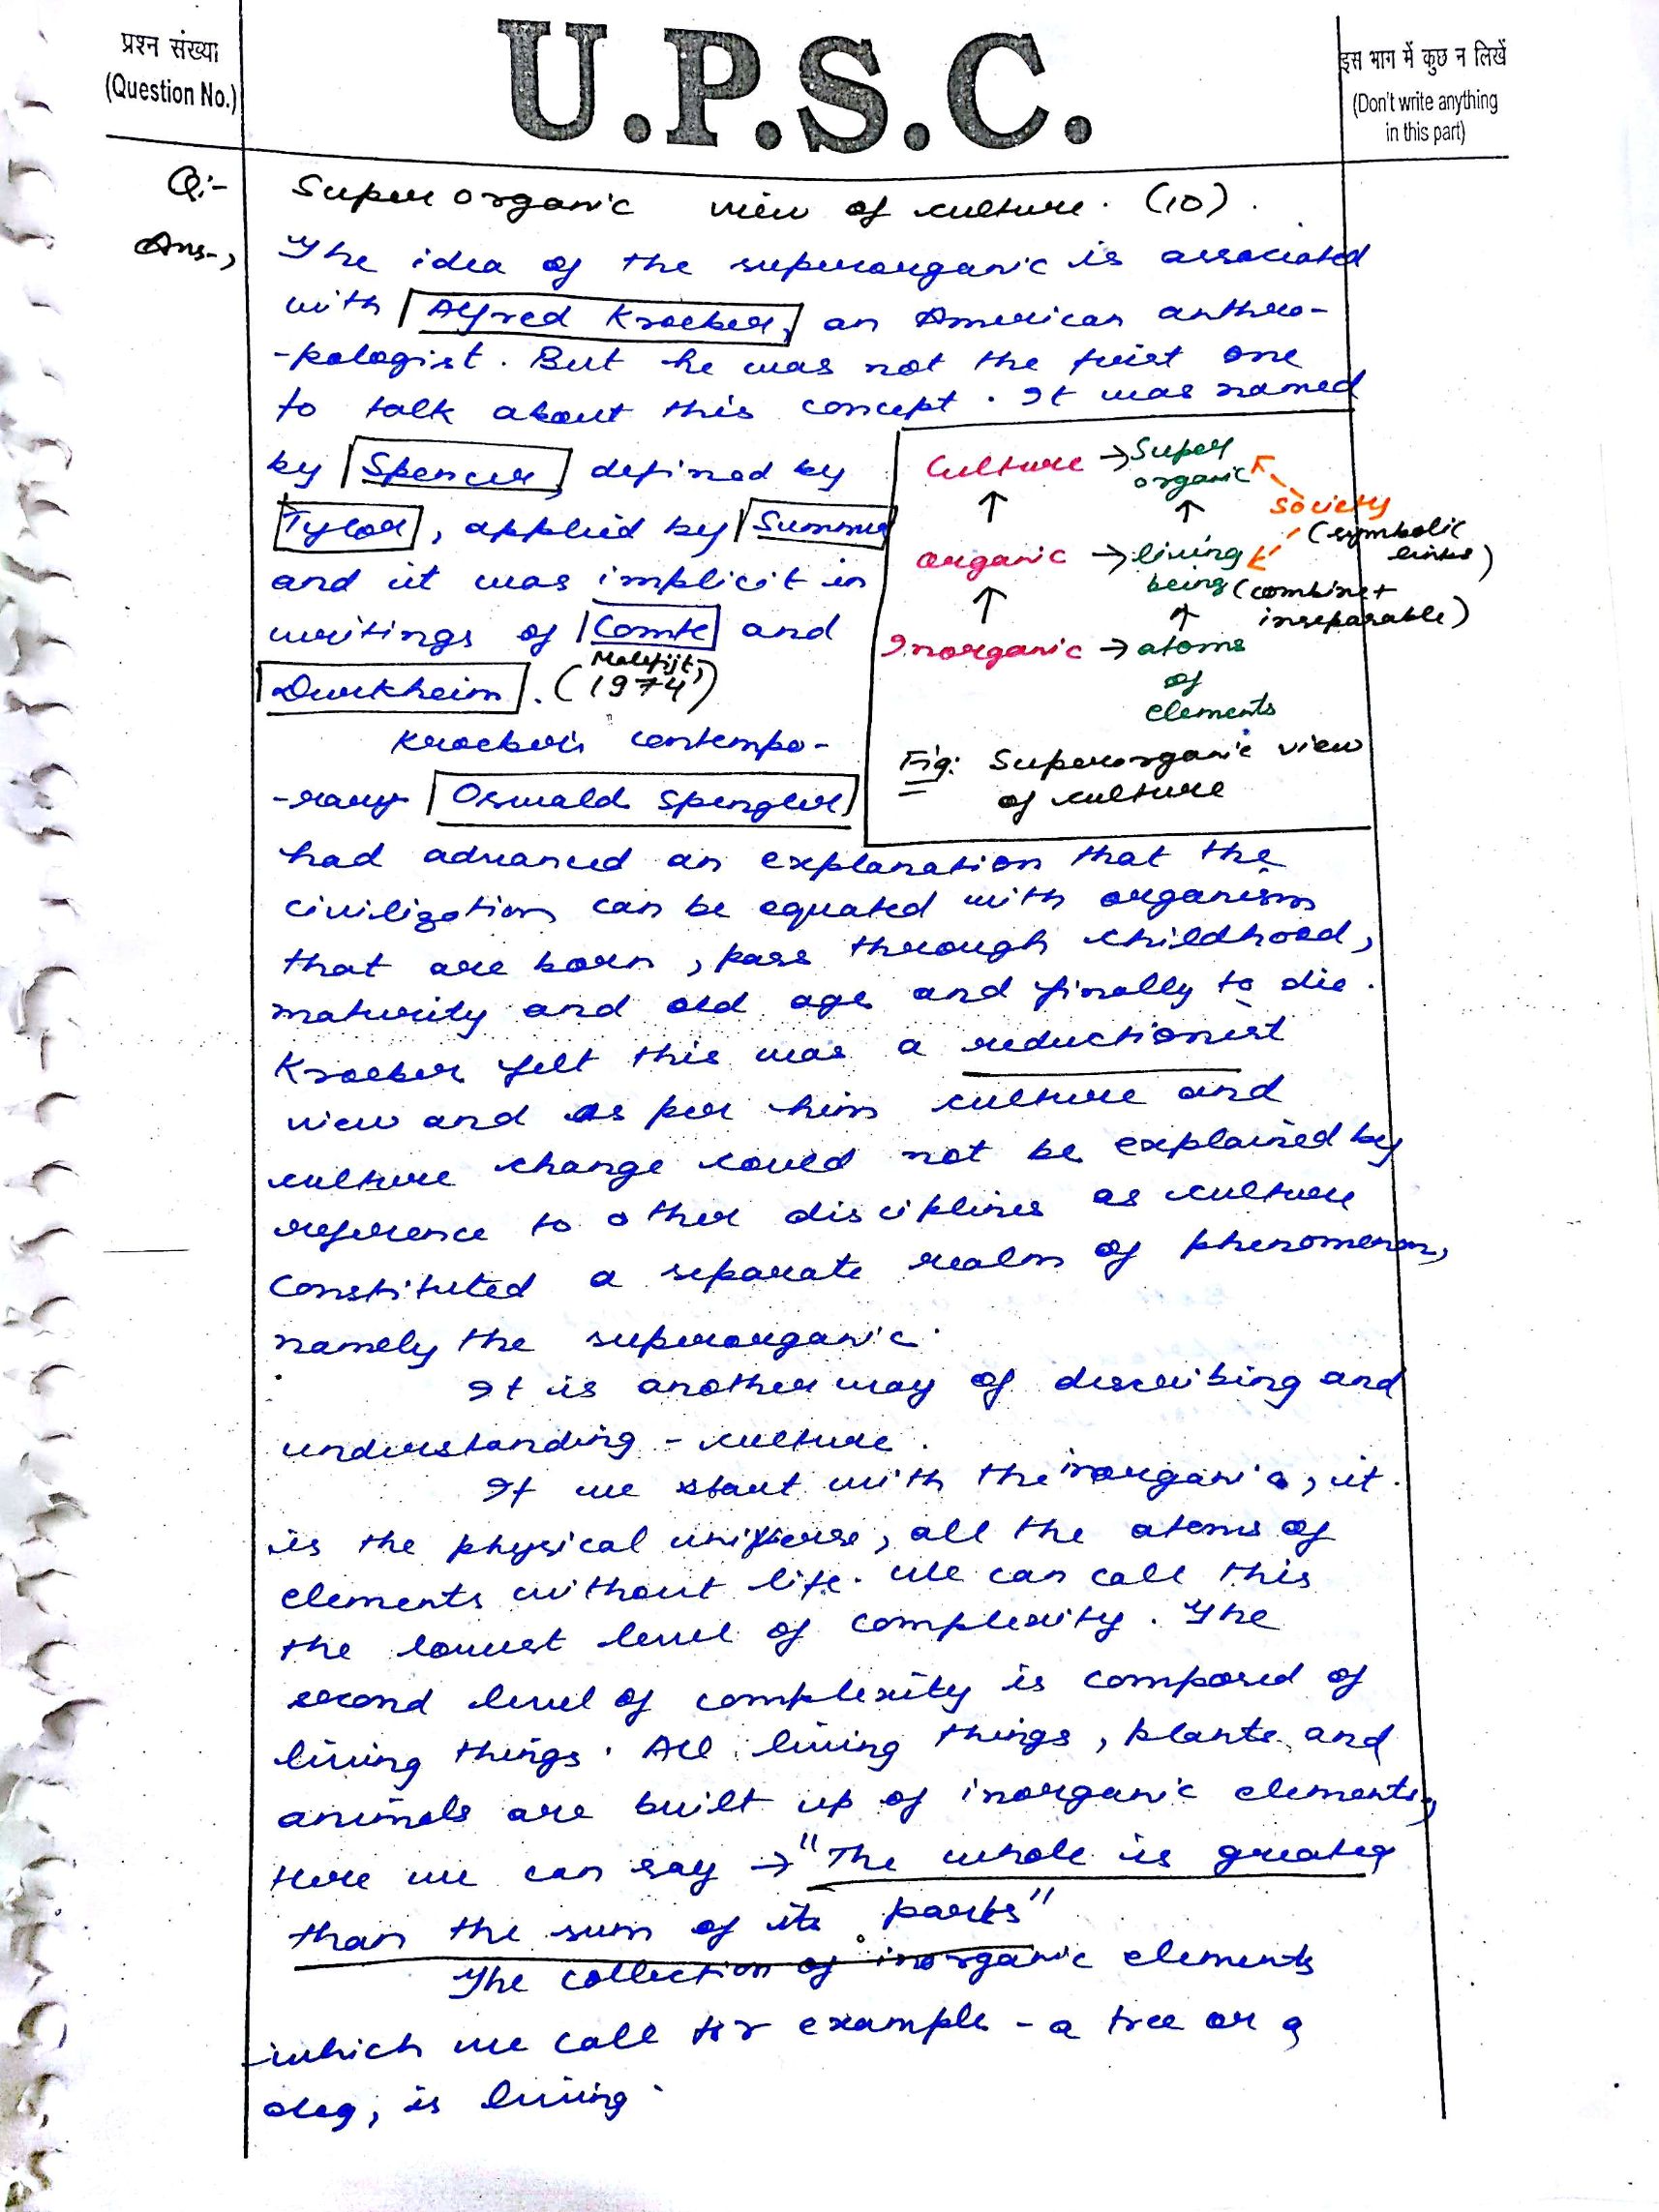 प्रश्न संख्या
(Question No.)
U.P.S.C.
इस भाग में कुछ न लिखें
(Don't write anything
in this part)
Q:- Super organic view of culture. (10).
Ans-, The idea of the superorganic is associated
with Alfred Kroeber, an American anthro-
-pologist. But he was not the first one
to talk about this concept. It was named
by Spencer, defined by
Tylor, applied by Summer
and it was implicit in
writings of Comte and
Durkheim. (Malefijt, 1974)
Kroeber's contempo-
-rary Oswald Spengler
Culture → Super organic
society
(symbolic links)
organic → living being (combinet inseparable)
Inorganic → atoms
of
elements
Fig: Superorganic view
of culture
had advanced an explanation that the
civilization can be equated with organism
that are born, pass through childhood,
maturity and old age and finally to die.
Kroeber felt this was a reductionist
view and as per him culture and
culture change could not be explained by
reference to other disciplines as culture
constituted a separate realm of phenomenon,
namely the superorganic.
It is another way of describing and
understanding - culture.
If we start with the inorganic, it
is the physical universe, all the atoms of
elements without life. We can call this
the lowest level of complexity. The
second level of complexity is composed of
living things. All living things, plants and
animals are built up of inorganic elements,
Here we can say → "The whole is greater
than the sum of its parts"
The collection of inorganic elements
which we call for example - a tree or a
dog, is living.